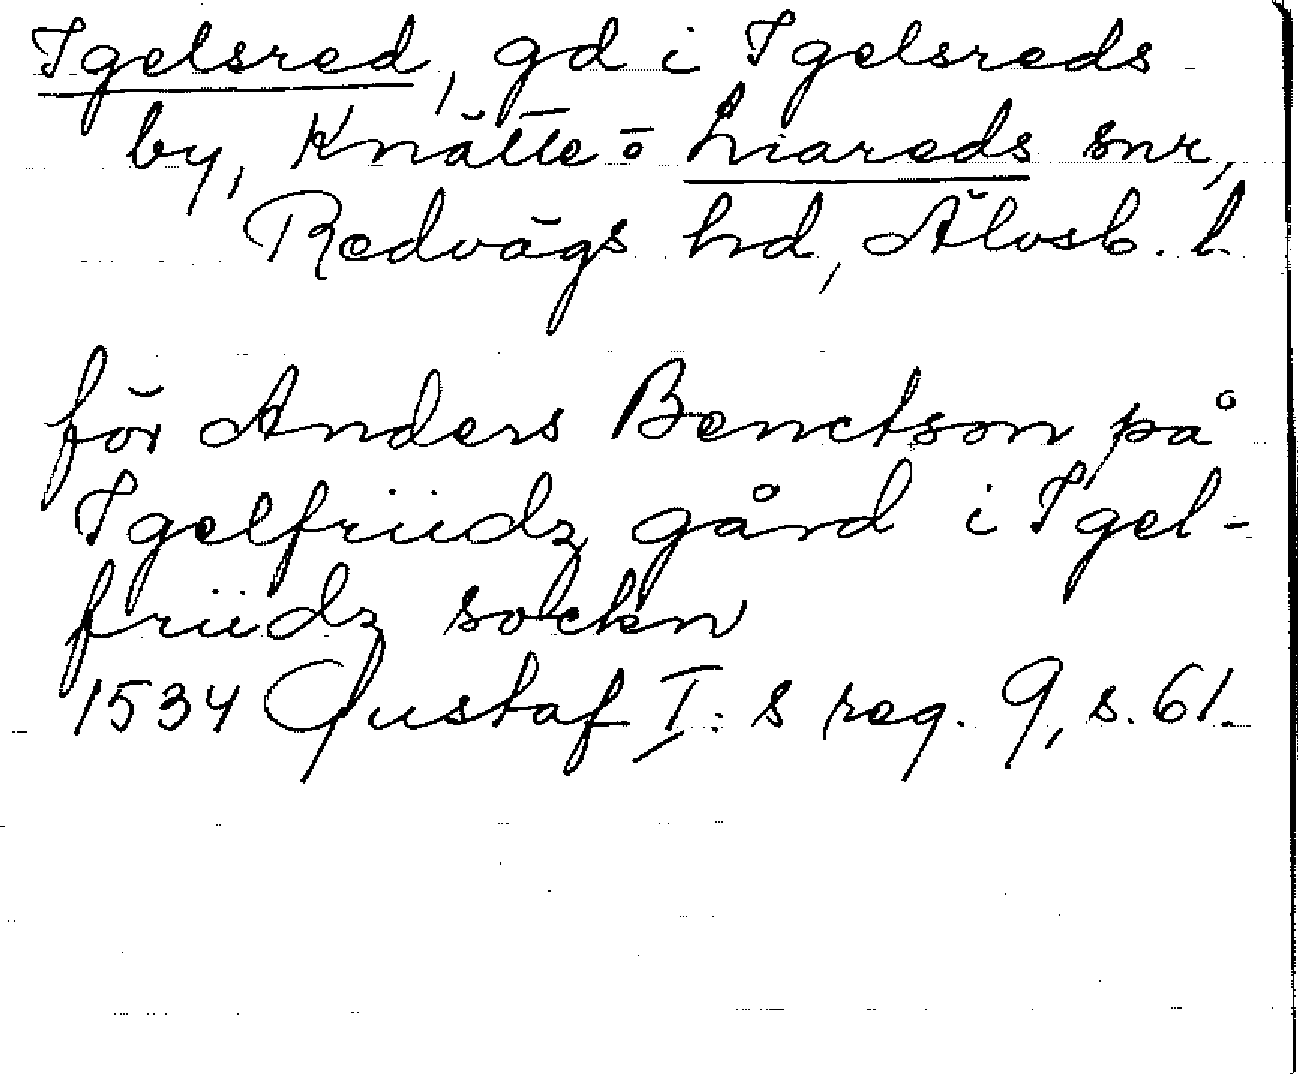 Igelsred, gd i Igelsreds
by, Knätte o Liareds snr,
Redvägs hd, Älvsb. l
för Anders Benctson på
Igelfriidz gård i Igel-
friidz sockn
1534 Gustaf I:s reg. 9, s. 61.